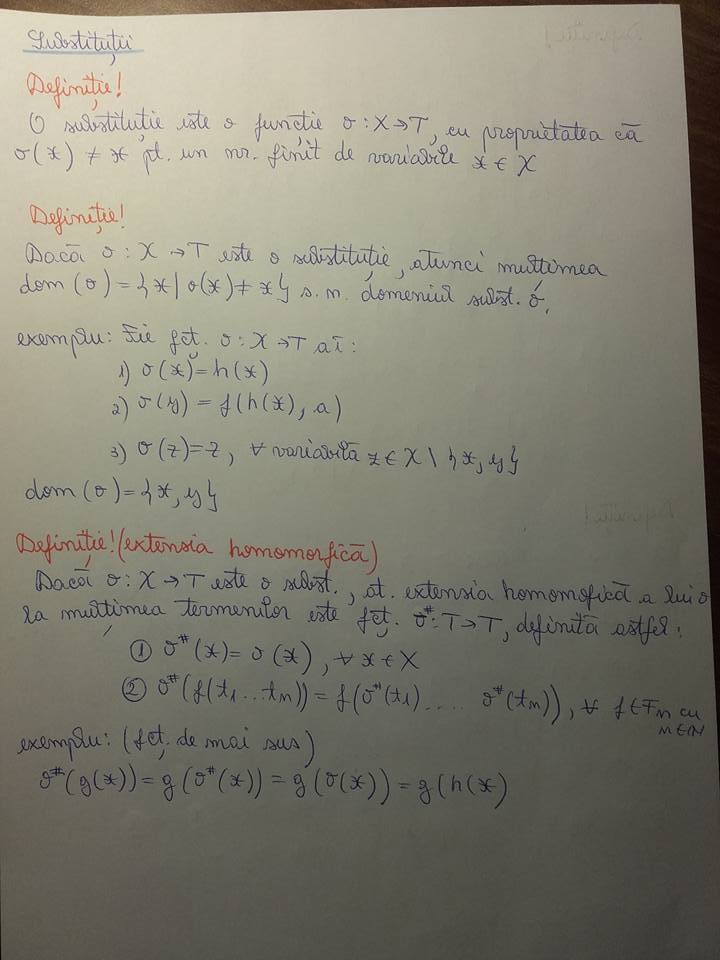 Substituții
Definiție!
O substituție este o funcție σ : X → T, cu proprietatea că
σ(x) ≠ x pt. un nr. finit de variabile x ∈ X
Definiție!
Dacă σ : X → T este o substituție, atunci mulțimea
dom (σ) = { x | σ(x) ≠ x } s.n. domeniul subst. σ.
exemplu: Fie fct. σ : X → T aî :
1) σ(x) = h(x)
2) σ(y) = f(h(x), a)
3) σ(z) = z, ∀ variabilă z ∈ X \ {x, y}
dom (σ) = {x, y}
Definiție! (extensia homomorfică)
Dacă σ : X → T este o subst., at. extensia homomofică a lui σ
la mulțimea termenilor este fct. σ# : T → T, definită astfel:
① σ#(x) = σ(x), ∀ x ∈ X
② σ#(f(t₁...tₙ)) = f(σ#(t₁) .... σ#(tₙ)), ∀ f ∈ Fₙ cu
n ∈ ℕ
exemplu: (fct. de mai sus)
σ#(g(x)) = g(σ#(x)) = g(σ(x)) = g(h(x)